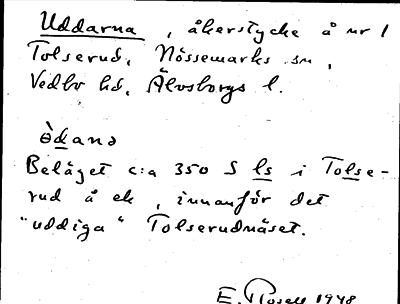 Uddarna, åkerstycke å nr 1
Tolserud, Nössemarks sn,
Vedbo hd, Älvsborgs l.
òdanə
Beläget c:a 350 S ls i Tolse-
rud å ek, innanför det
"uddiga" Tolserudnäset.
E. Rosell 1948